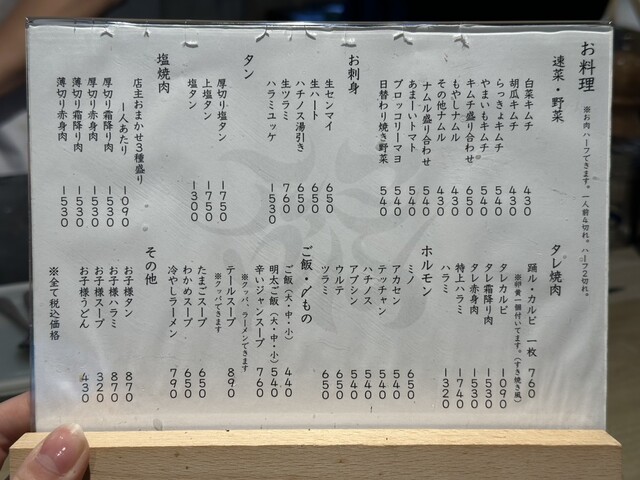 お料理
※お肉ハーフできます。一人前4切れ。ハーフ2切れ。
速菜・野菜
白菜キムチ 430
胡瓜キムチ 430
らっきょキムチ 540
やまいもキムチ 540
キムチ盛り合わせ 650
もやしナムル 430
その他ナムル 430
ナムル盛り合わせ 540
あまーいトマト 540
ブロッコリーマヨ 540
日替わり焼き野菜 540
お刺身
生センマイ 650
生ハート 650
ハチノス湯引き 650
生ツラミ 760
ハラミユッケ 1530
タン
厚切り塩タン 1750
上塩タン 1750
塩タン 1300
塩焼肉
店主おまかせ3種盛り
1人あたり 1090
厚切り霜降り肉 1530
厚切り赤身肉 1530
薄切り霜降り肉 1530
薄切り赤身肉 1530
タレ焼肉
踊ル・カルビ 一枚 760
※卵黄一個付いてます。(すき焼き風)
タレカルビ 1090
タレ霜降り肉 1530
タレ赤身肉 1530
特上ハラミ 1740
ハラミ 1320
ホルモン
ミノ 650
アカセン 540
テッチャン 540
ハチノス 540
アブシン 540
ウルテ 650
ツラミ 650
ご飯・〆もの
ご飯(大・中・小) 440
明太ご飯(大・中・小) 540
辛いジャンスープ 760
※クッパ、ラーメンできます
テールスープ 890
※クッパできます
たまごスープ 650
わかめスープ 650
冷やしラーメン 790
その他
お子様タン 870
お子様ハラミ 870
お子様スープ 320
お子様うどん 430
※全て税込価格